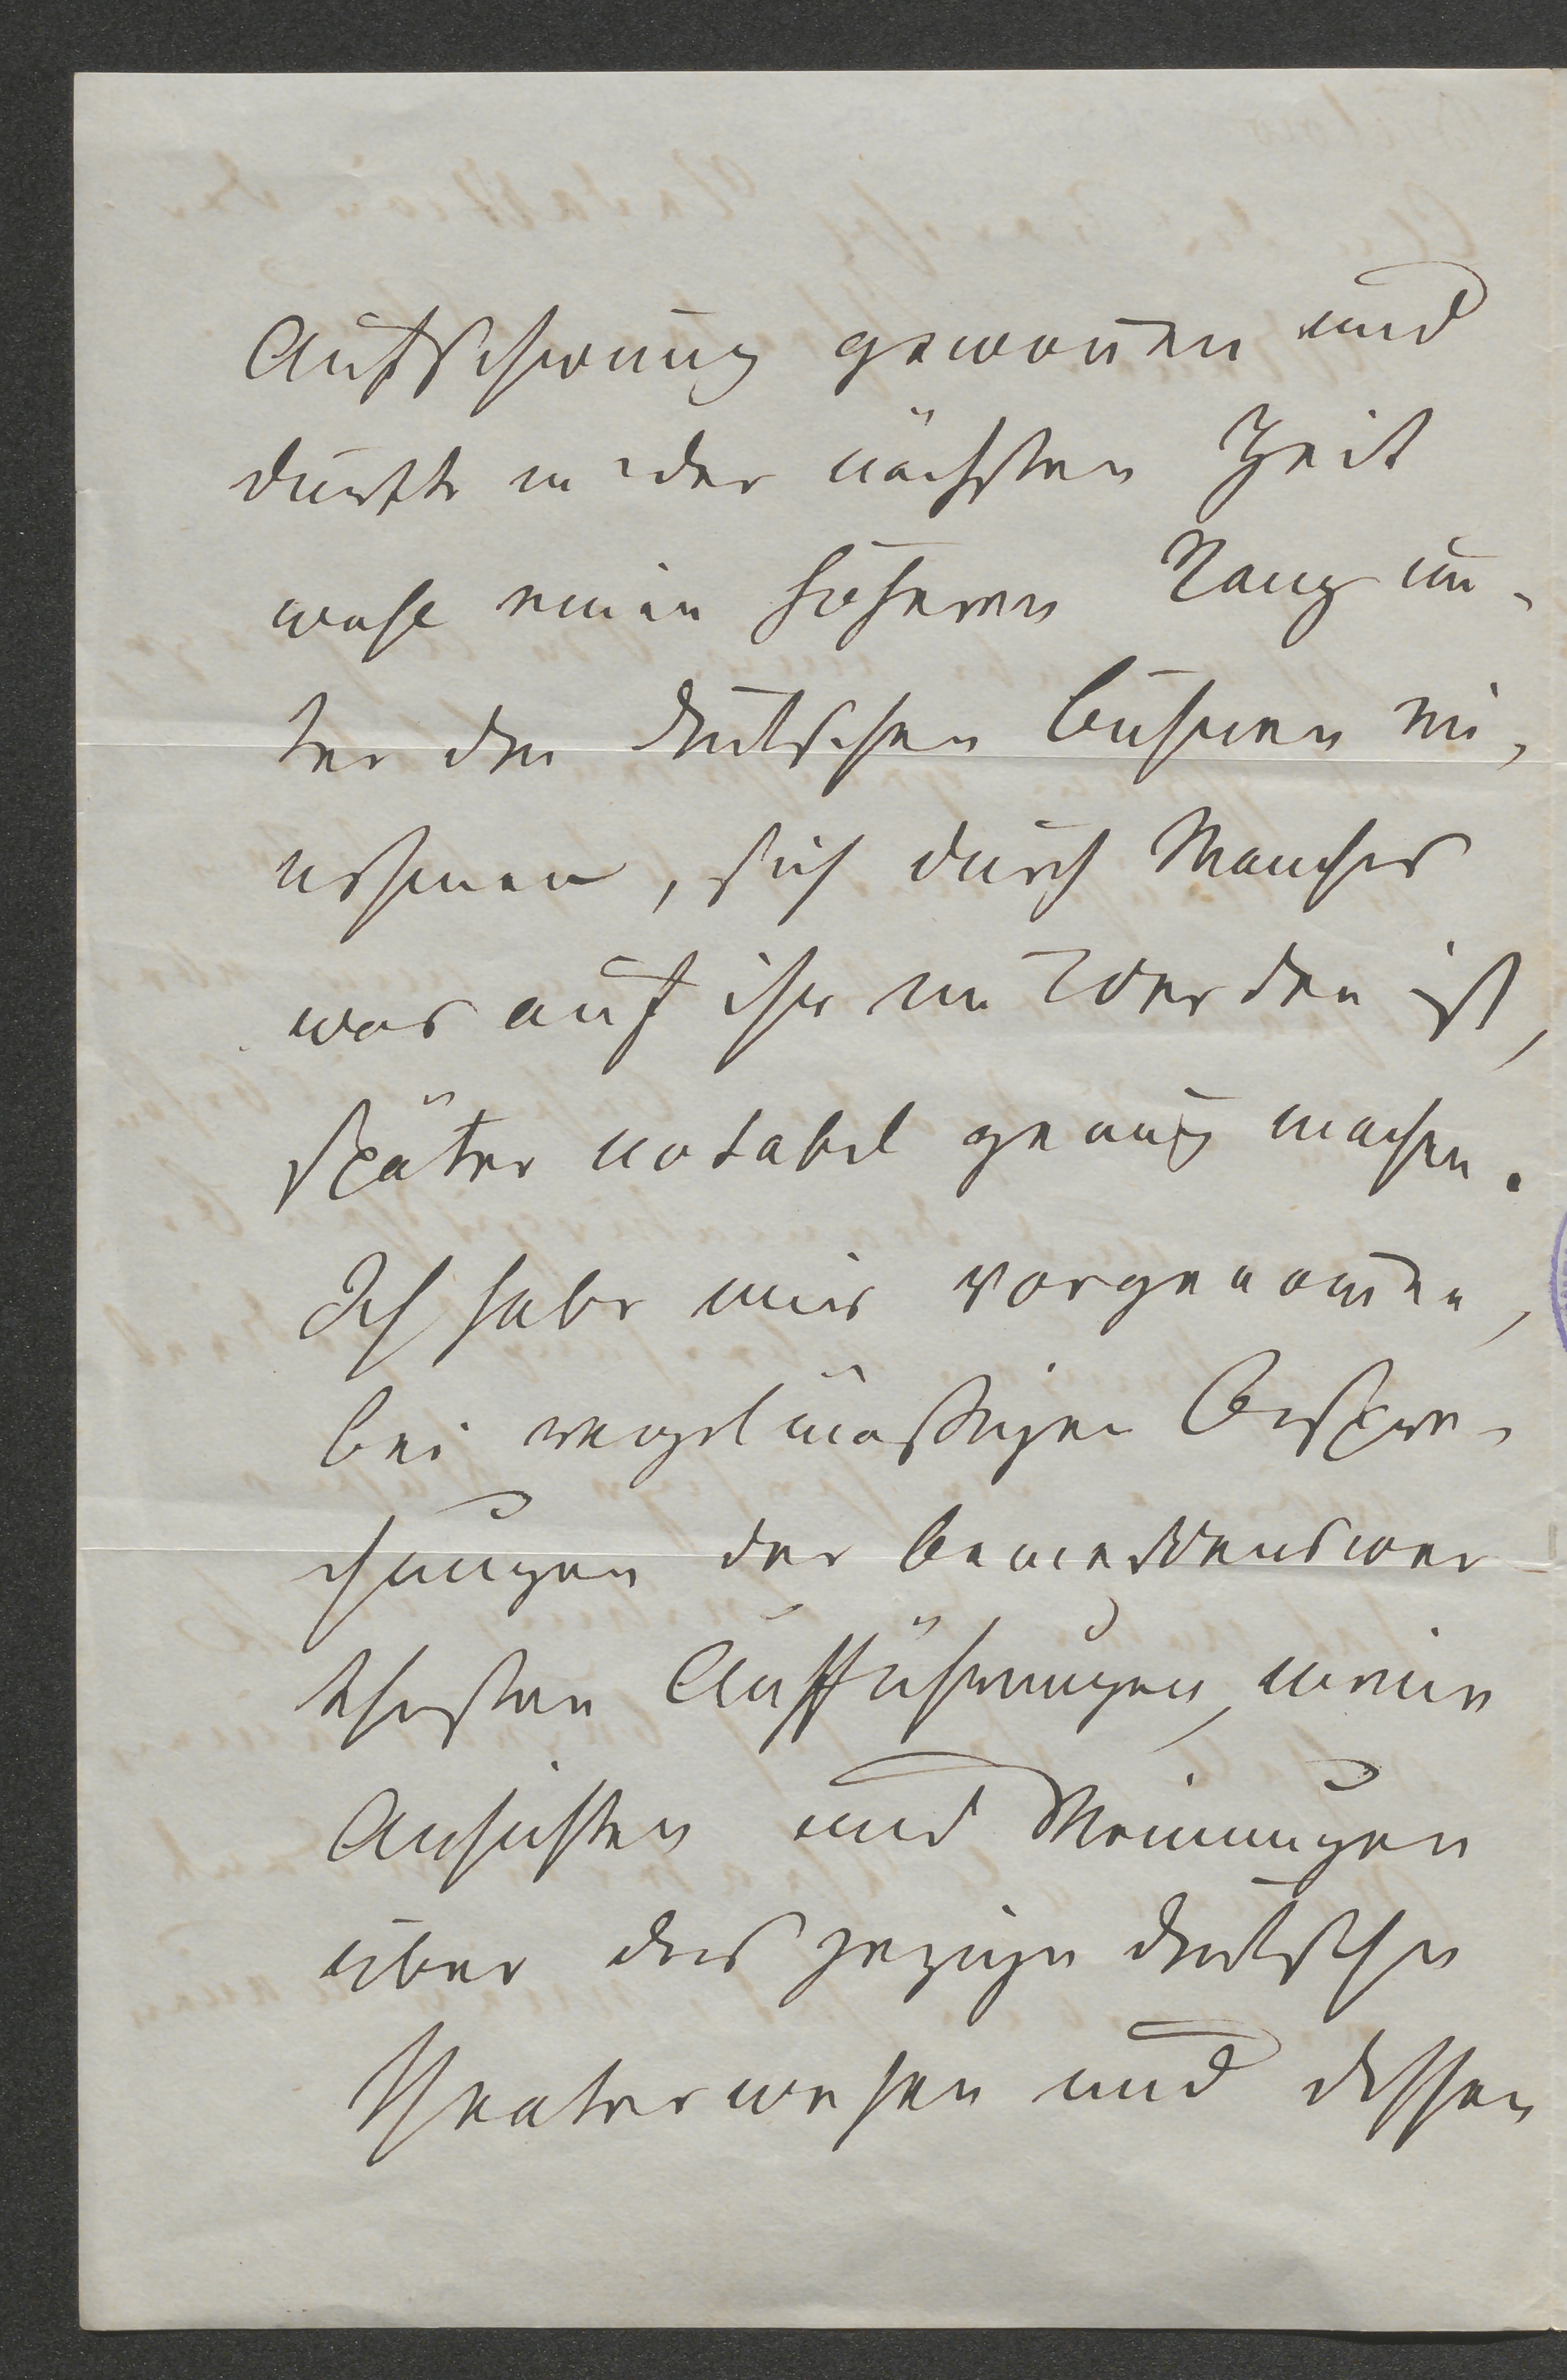 Aufschwung gewon̄en und
durfte in der nächsten Zeit
wohl einen höheren Rang un-
ter den deutschen Buhnen ein-
nehmen, sich durch Manches
was auf ihr im Werden ist,
später notabel genug machen.
Ich habe mir vorgenom̄en,
bei regelmäßigen Bespre-
chungen der bemerkenswer-
thesten Aufführungen, meine
Ansichten und Meinungen
über das jezige deutsche
Theaterwesen und dessen